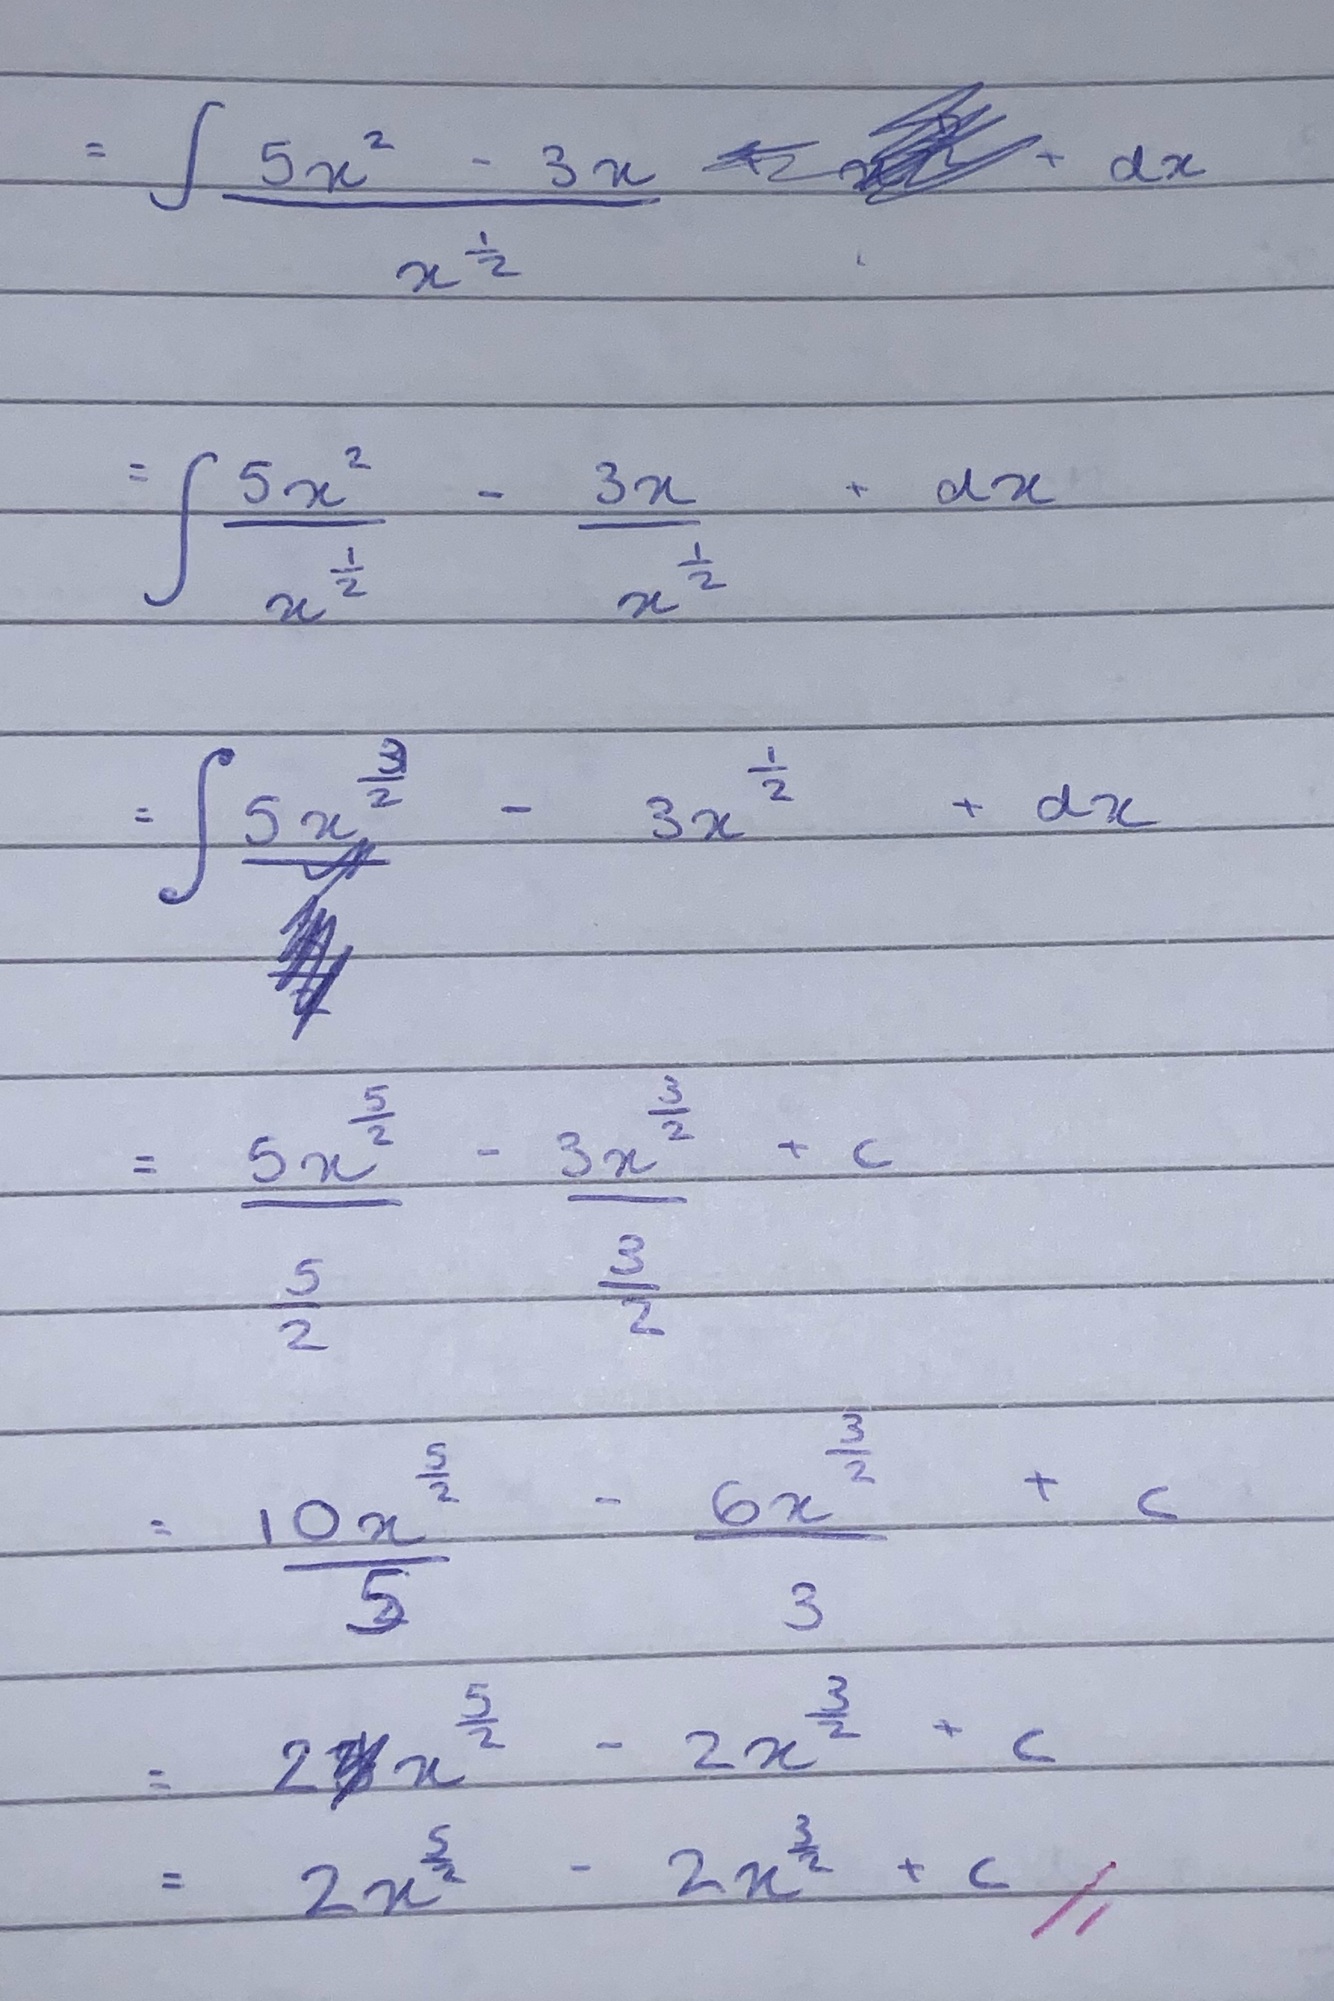 = ∫ (5x² - 3x)/x^(1/2) + dx
= ∫ 5x²/x^(1/2) - 3x/x^(1/2) + dx
= ∫ 5x^(3/2) - 3x^(1/2) + dx
= 5x^(5/2)/(5/2) - 3x^(3/2)/(3/2) + c
= 10x^(5/2)/5 - 6x^(3/2)/3 + c
= 2x^(5/2) - 2x^(3/2) + c
= 2x^(5/2) - 2x^(3/2) + c //